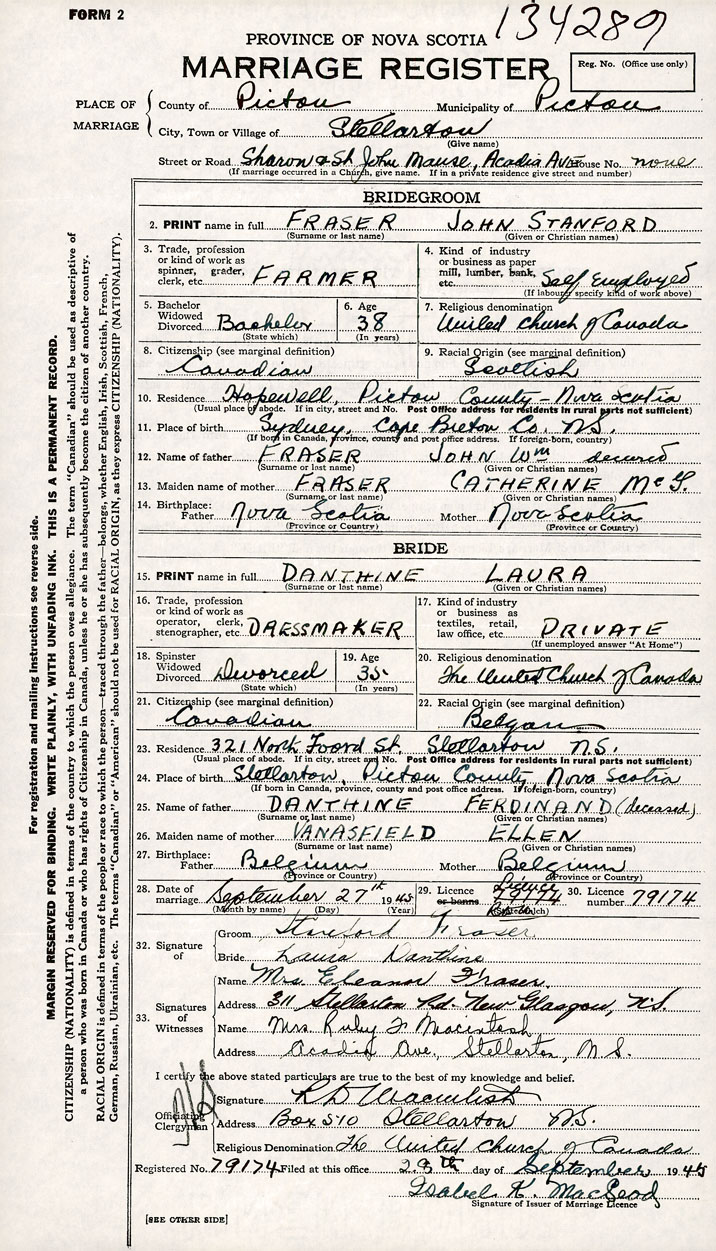 FORM 2
134289
PROVINCE OF NOVA SCOTIA
MARRIAGE REGISTER
Reg. No. (Office use only)
PLACE OF MARRIAGE
County of Pictou Municipality of Pictou
City, Town or Village of Stellarton
(Give name)
Street or Road Sharon & St. John Manse, Acadia Ave House No. none
(If marriage occurred in a Church, give name. If in a private residence give street and number)
BRIDEGROOM
2. PRINT name in full FRASER JOHN STANFORD
(Surname or last name) (Given or Christian names)
3. Trade, profession or kind of work as spinner, grader, clerk, etc. FARMER
4. Kind of industry or business as paper mill, lumber, bank, etc. Self Employed
(If labourer specify kind of work above)
5. Bachelor Widowed Divorced Bachelor
(State which)
6. Age 38
(In years)
7. Religious denomination United Church of Canada
8. Citizenship (see marginal definition) Canadian
9. Racial Origin (see marginal definition) Scottish
10. Residence Hopewell, Pictou County - Nova Scotia
(Usual place of abode. If in city, street and No. Post Office address for residents in rural parts not sufficient)
11. Place of birth Sydney, Cape Breton Co. N.S.
(If born in Canada, province, county and post office address. If foreign-born, country)
12. Name of father FRASER JOHN Wm
(Surname or last name) (Given or Christian names)
13. Maiden name of mother FRASER CATHERINE McG.
(Surname or last name) (Given or Christian names)
14. Birthplace: Father Nova Scotia Mother Nova Scotia
(Province or Country) (Province or Country)
BRIDE
15. PRINT name in full DANTHINE LAURA
(Surname or last name) (Given or Christian names)
16. Trade, profession or kind of work as operator, clerk, stenographer, etc. DRESSMAKER
17. Kind of industry or business as textiles, retail, law office, etc. PRIVATE
(If unemployed answer "At Home")
18. Spinster Widowed Divorced Divorced
(State which)
19. Age 35
(In years)
20. Religious denomination The United Church of Canada
21. Citizenship (see marginal definition) Canadian
22. Racial Origin (see marginal definition) Belgan
23. Residence 321 North Foord St. Stellarton N.S.
(Usual place of abode. If in city, street and No. Post Office address for residents in rural parts not sufficient)
24. Place of birth Stellarton, Pictou County, Nova Scotia
(If born in Canada, province, county and post office address. If foreign-born, country)
25. Name of father DANTHINE FERDINAND (deceased)
(Surname or last name) (Given or Christian names)
26. Maiden name of mother VANASFIELD ELLEN
(Surname or last name) (Given or Christian names)
27. Birthplace: Father Belgium Mother Belgium
(Province or Country) (Province or Country)
28. Date of marriage September 27th 1945
(Month by name) (Day) (Year)
29. Licence or banns
30. Licence number 79174
32. Signature of
Groom Stanford Fraser
Bride Laura Danthine
33. Signatures of Witnesses
Name Mrs. Eleanor Fraser.
Address 311 Stellarton Rd. New Glasgow, N.S.
Name Mrs. Ruby Macintosh
Address Acadia Ave, Stellarton, N.S.
I certify the above stated particulars are true to the best of my knowledge and belief.
Officiating Clergyman
Signature
Address Box 510 Stellarton N.S.
Religious Denomination The United Church of Canada
Registered No. 79174 Filed at this office 28th day of September 1945
Isabel K. MacLeod
Signature of Issuer of Marriage Licence
[SEE OTHER SIDE]
For registration and mailing instructions see reverse side.
MARGIN RESERVED FOR BINDING. WRITE PLAINLY, WITH UNFADING INK. THIS IS A PERMANENT RECORD.
CITIZENSHIP (NATIONALITY) is defined in terms of the country to which the person owes allegiance. The term "Canadian" should be used as descriptive of
a person who was born in Canada or who has rights of Citizenship in Canada, unless he or she has subsequently become the citizen of another country.
RACIAL ORIGIN is defined in terms of the people or race to which the person—traced through the father—belongs, whether English, Irish, Scottish, French,
German, Russian, Ukrainian, etc. The terms "Canadian" or "American" should not be used for RACIAL ORIGIN, as they express CITIZENSHIP (NATIONALITY).